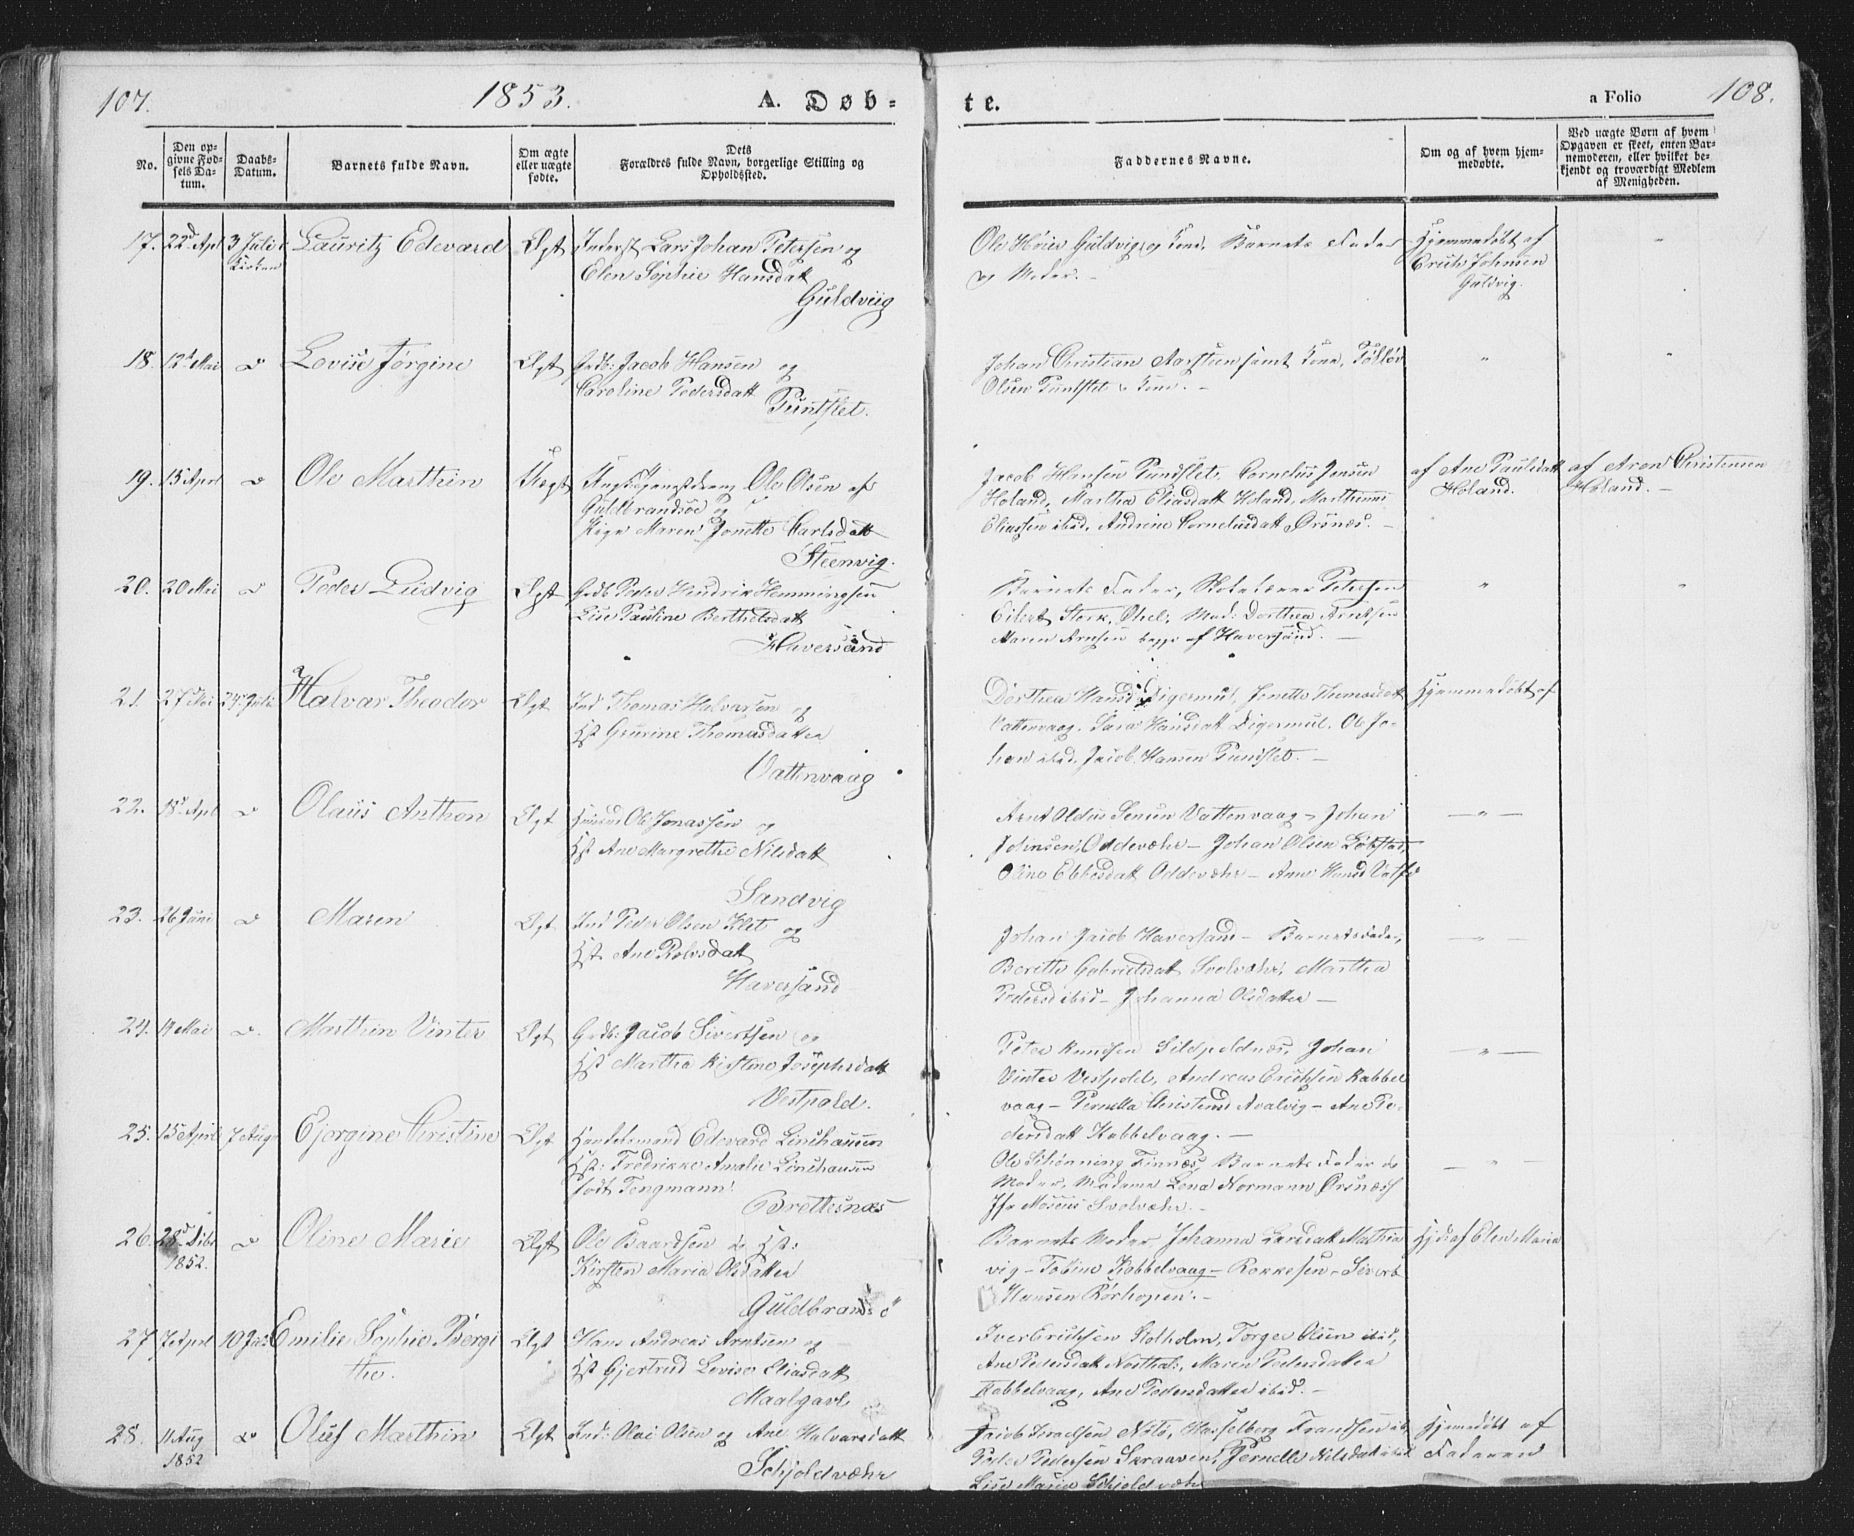 107.
1853.
A. Døb-
te.
a Folio
108.
No.
Den op-
givne Fød-
sels Da-
tum.
Daabs-
Datum.
Barnets fulde Navn.
Om ægte
eller uægte
fødte.
Dets
Forældres fulde Navn, borgerlige Stilling og
Opholdssted.
Faddernes Navne.
Om og af hvem hjem-
medøbte.
Ved uægte Børn af hvem
Opgaven er skeet, enten Bar-
nemoderen, eller hvilket be-
kjendt og troværdigt Medlem
af Menigheden.
17. 22d Apl 3 Juli i
Kirken
Lauritz Edevard
Ægt
Inderst Lars Johan Petersen og
Elen Sophie Hansdatt
Guldviig
Ole Høier Guldvig og Kone, Barnets Fader
og Moder. -
Hjemmedøbt af
Erich Johnsen
Guldvig.
"
18. 12t Mai
Lovise Jørgine
Ægt
Grdb: Jacob Hansen og
Caroline Pedersdatt
Pundslet.
Johan Christian samt Kone,
Olsen Pundslet & Kone. -
"
"
19. 15 Aprl
Ole Marthin
Uægt
Ungkarl Ole Olsen af
Guldbrandsøe og
Pige Maren Jonette Carlsdatt
Steenvig.
Jacob Hansen Pundslet, Cornelius Jensen
Høland, Martha Eliasdatt Høland, Marthinus
Eliassen ibid, Andrine Corneliusdatt Ørsnæs. -
af Ane Paulsdatt
Høland.
af Aron Christensen
Høland. -
20. 20 Mai
Peder Ludvig
Ægt
Grdb Peder Hendrik Hemmingsen
Lise Pauline Berthelsdatt
Haversand
Barnets Fader, Skolelærer Petersen
Eilert Stork, Mad: Dorthea Arntsen
Maren Arnsen begge af Haversand. -
"
"
21. 27 Mai 24 Julii
Halvar Theodor
Ægt
Ind Thomas Halvorsen og
Hst Gurine Thomasdatter
Vattenvaag
Dorthea Hansd Digermul, Jonette Thomasdatt
Vattenvaag, Sara Hansdatt Digermul, Ole Jo-
han ibid, Jacob Hansen Pundslet. -
Hjemmedøbt af
22. 18d Apl
Olaus Anthon
Ægt
Huusmd Ole Jonassen og
Hst Ane Margrethe Nilsdatt
Sandvig
Arnt Oldus Jensen Vattenvaag - Johan
Johnsen Oddevæhr - Johan Olsen
Oline Ebbesdatt Oddevæhr - Anne Hansd
— " —
23. 26 Juni
Maren
Ægt
Ind Peder Olsen Klet og
Hst. Ane Rolosdatt
Haversand
Johan Jacob Haversand - Barnets Fader,
Berith Gabrielsdatt Svolvæhr, Martha
Pedersd ibid - Johanna Olsdatter -
— " —
24. 19 Mai
Marthin Vinter
Ægt
Grdb: Jacob Sivertsen og
Hst Martha Kirstine Josephsdatt
Vestpold.
Peter Knudsen Sildpoldnæs, Johan
Vinter Vestpold, Andreas Erichsen Kabbel
vaag - Pernella Christensd - Ane Pe-
dersdatt Kabbelvaag. -
— " —
25. 15 Aprl 7 Aug
Gjørgine Christine
Ægt
Handelsmand Edevard Linshausen
Hst: Fredrikke Amalie Linshausen
født Tengmann
Brettesnæs
Ole Schønning Finnæs, Barnets Fader &
Moder, Madame Lena Normann Ørsnæs
Jfr Svolvæhr. -
— " —
26. 28d Dcbr
1852.
Oline Marie
Ægt
Ole Baardsen & Hst:
Kirsten Maria Olsdatter
Guldbrandsø
Barnets Moder Johanna Larsdatt
vig - Tobine Kabbelvaag - Rokkesen - Sivert
Hansen Rørhopen. -
Hjd: af Elen Maria
27. 7 Aprl 10 Juli
Emilie Sophie Bergi
the.
Ægt
Hans Andreas Arntsen og
Hst Gjertrud Lovise Eliasdatt
Maalgavl
Iver Erichsen Stolholm, Torger Olsen ibid,
Ane Pedersdatt, Maren Pedersdatter
Kabbelvaag, Ane Pedersdatter ibid. -
28. 11 Aug
1852
Oluf Marthin
Ægt
Ind: Olai Olsen og Ane Halvorsdatt
Schjoldvæhr
Jacob, Hasselberg Frandsen ibd
Peder Pedersen Skraaven, Pernelle Nilsdatt ibid
Lise Marie Schjoldvæhr
Hjemmedøbt af
Faderen